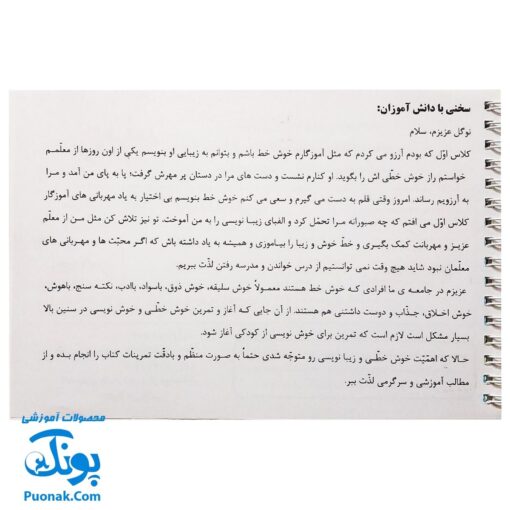 سخنی با دانش آموزان:
نوگل عزیزم، سلام
کلاس اوّل که بودم آرزو می کردم که مثل آموزگارم خوش خط باشم و بتوانم به زیبایی او بنویسم یکی از اون روزها از معلّمم
خواستم راز خوش خطّی اش را بگوید. او کنارم نشست و دست های مرا در دستان پر مهرش گرفت؛ پا به پای من آمد و مرا
به آرزویم رساند. امروز وقتی قلم به دست می گیرم و سعی می کنم خوش خط بنویسم بی اختیار به یاد مهربانی های آموزگار
کلاس اوّل می افتم که چه صبورانه مرا تحمّل کرد و الفبای زیبا نویسی را به من آموخت. تو نیز تلاش کن مثل من از معلّم
عزیز و مهربانت کمک بگیری و خطّ خوش و زیبا را بیاموزی و همیشه به یاد داشته باش که اگر محبّت ها و مهربانی های
معلّمان نبود شاید هیچ وقت نمی توانستیم از درس خواندن و مدرسه رفتن لذّت ببریم.
عزیزم در جامعه ی ما افرادی که خوش خط هستند معمولاً خوش سلیقه، خوش ذوق، باسواد، باادب، نکته سنج، باهوش،
خوش اخلاق، جذّاب و دوست داشتنی هم هستند. از آن جایی که آغاز و تمرین خوش خطّی و خوش نویسی در سنین بالا
بسیار مشکل است لازم است که تمرین برای خوش نویسی از کودکی آغاز شود.
حالا که اهمّیّت خوش خطّی و زیبا نویسی رو متوجّه شدی حتماً به صورت منظّم و بادقّت تمرینات کتاب را انجام بده و از
مطالب آموزشی و سرگرمی لذّت ببر.
محصولات آموزشی
پونک
Puonak.Com